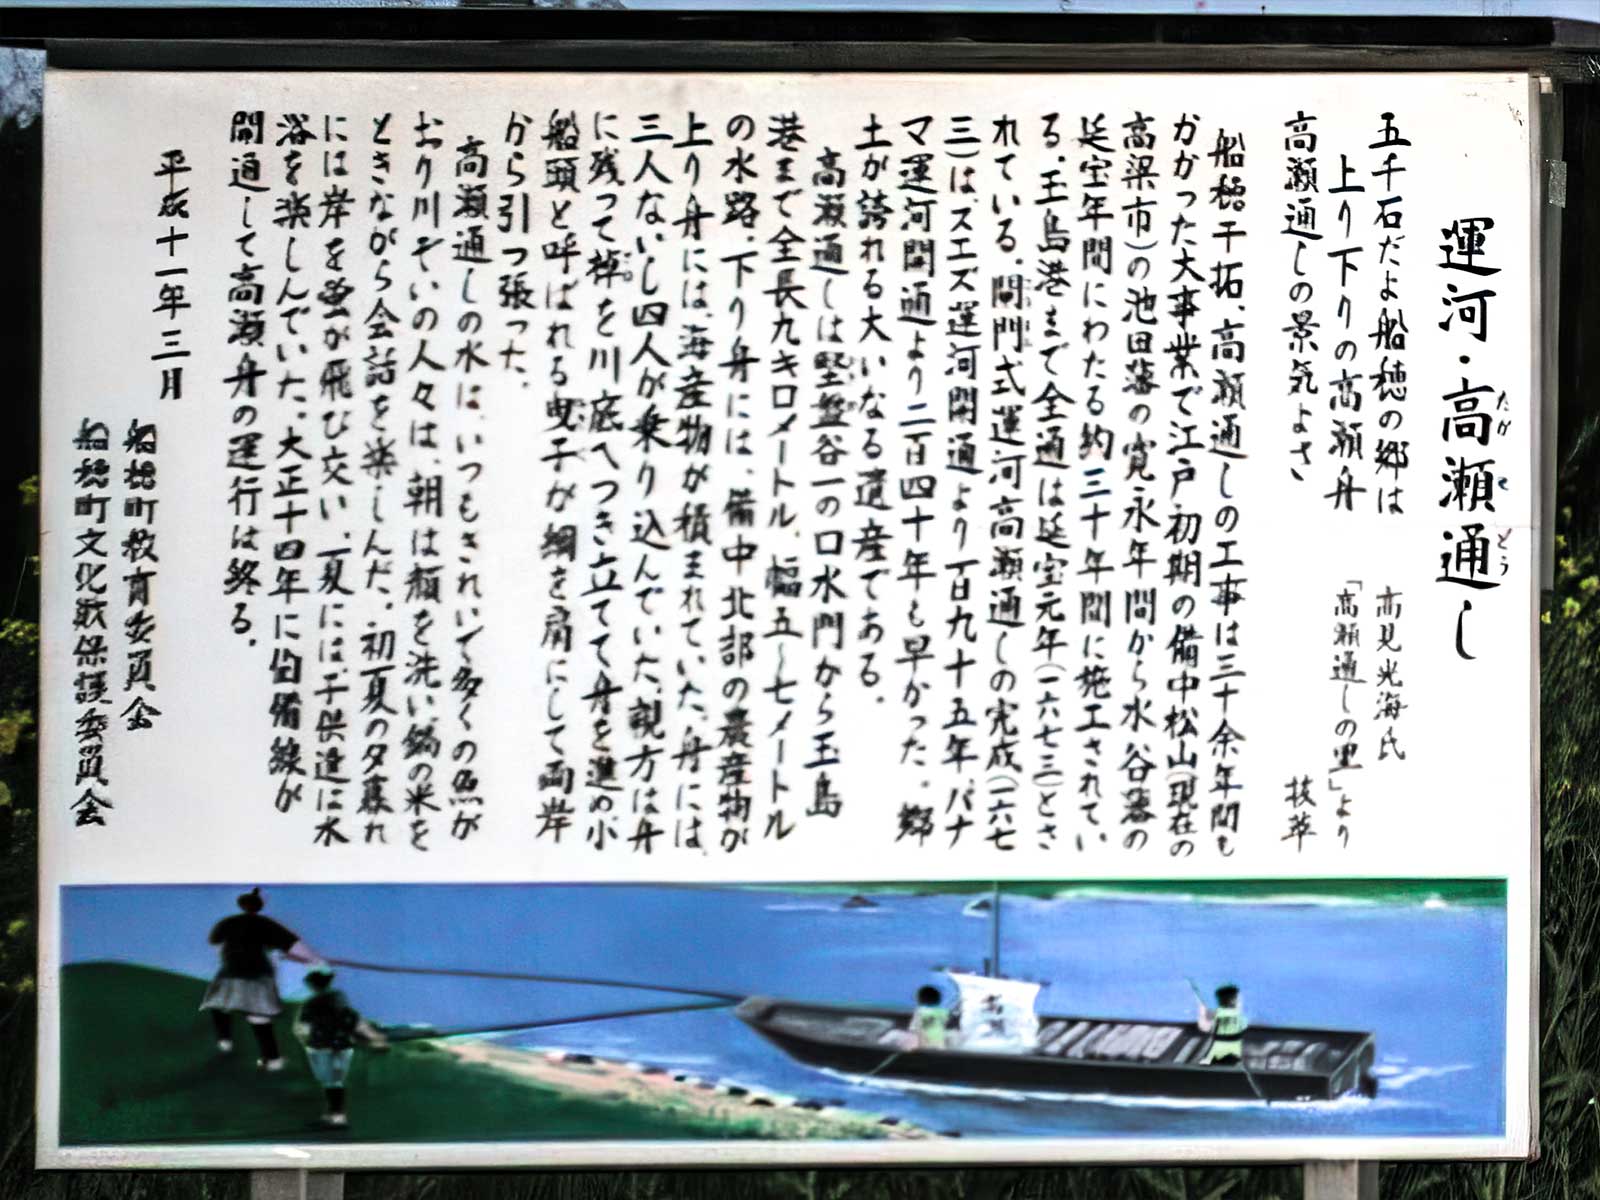 運河・高瀬通し
たか せ どう
五千石だよ船穂の郷は
上り下りの高瀬舟
高瀬通しの景気よさ
高見光海氏
「高瀬通しの里」より
抜萃
船穂干拓、高瀬通しの工事は三十余年間も
かかった大事業で江戸初期の備中松山(現在の
高梁市)の池田藩の寛永年間から水谷藩の
延宝年間にわたる約三十年間に施工されてい
る。玉島港まで全通は延宝元年(一六七三)とさ
れている。閘門式運河高瀬通しの完成(一六七
三)は、スエズ運河開通より一百九十五年、パナ
マ運河開通より二百四十年も早かった。郷
土が誇れる大いなる遺産である。
高瀬通しは堅盤谷一の口水門から玉島
港まで全長九キロメートル、幅五〜七メートル
の水路。下り舟には、備中北部の農産物が
上り舟には、海産物が積まれていた。舟には、
三人ないし四人が乗り込んでいた。親方は舟
に残って棹を川底へつき立てて舟を進め小
船頭と呼ばれる曳子が綱を肩にして両岸
から引っ張った。
高瀬通しの水は、いつもきれいで多くの魚が
おり川ぞいの人々は、朝は顔を洗い、鍋の米を
ときながら会話を楽しんだ。初夏の夕暮れ
には岸を蛍が飛び交い、夏には、子供達は水
浴を楽しんでいた。大正十四年に伯備線が
開通して高瀬舟の運行は終る。
平成十一年三月
船穂町教育委員会
船穂町文化財保護委員会
高瀬